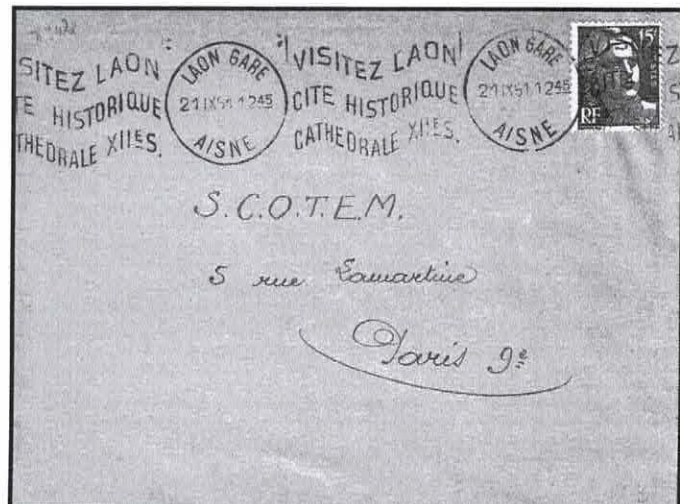 SITEZ LAON
TE HISTORIQUE
THEDRALE XIIES.
LAON GARE
21 IX51 1245
AISNE
VISITEZ LAON
CITE HISTORIQUE
CATHEDRALE XIIES.
LAON GARE
21 IX51 1245
AISNE
15F
RF
S.C.O.T.E.M.
5 rue Lamartine
Paris 9e